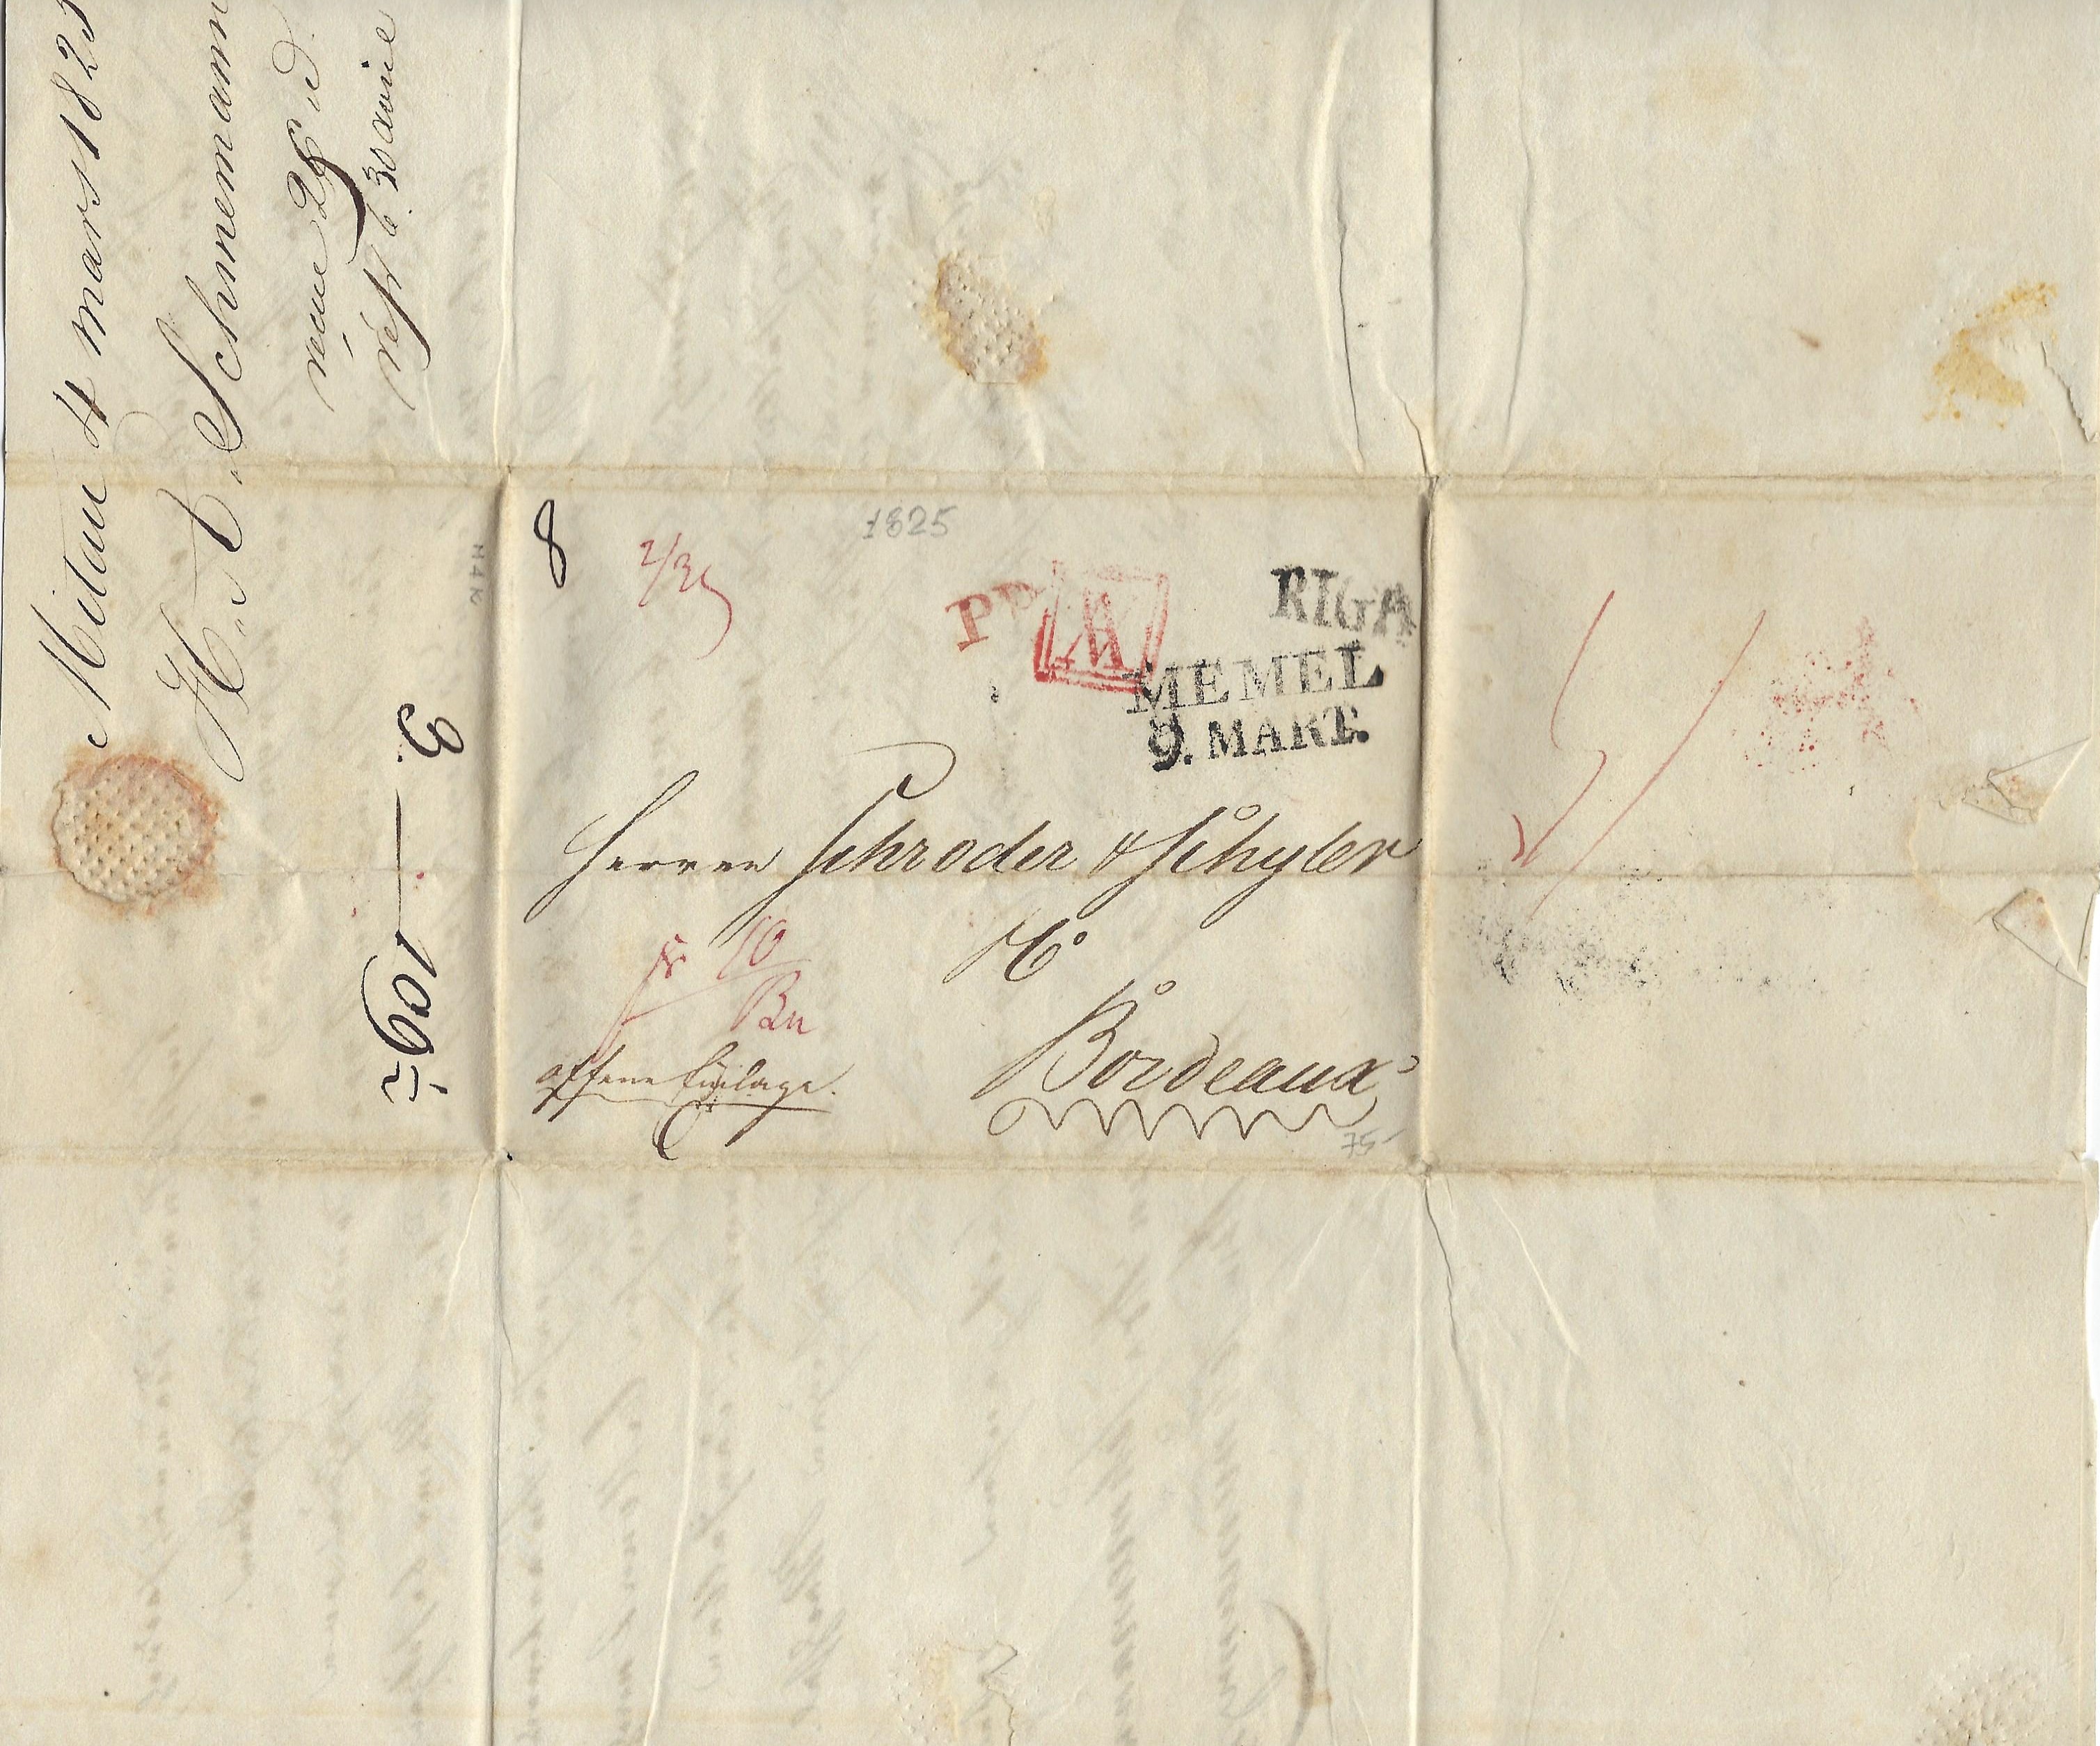 Mitau 4 mars 1825
H. A. Schmemann
réçue 26 id
rép 6. 30 avril
8
1825
PP
RIGA
MEMEL
9. MART.
Herren Schroder & Schyler
&Co
Bordeaux
offene Einlage.
75